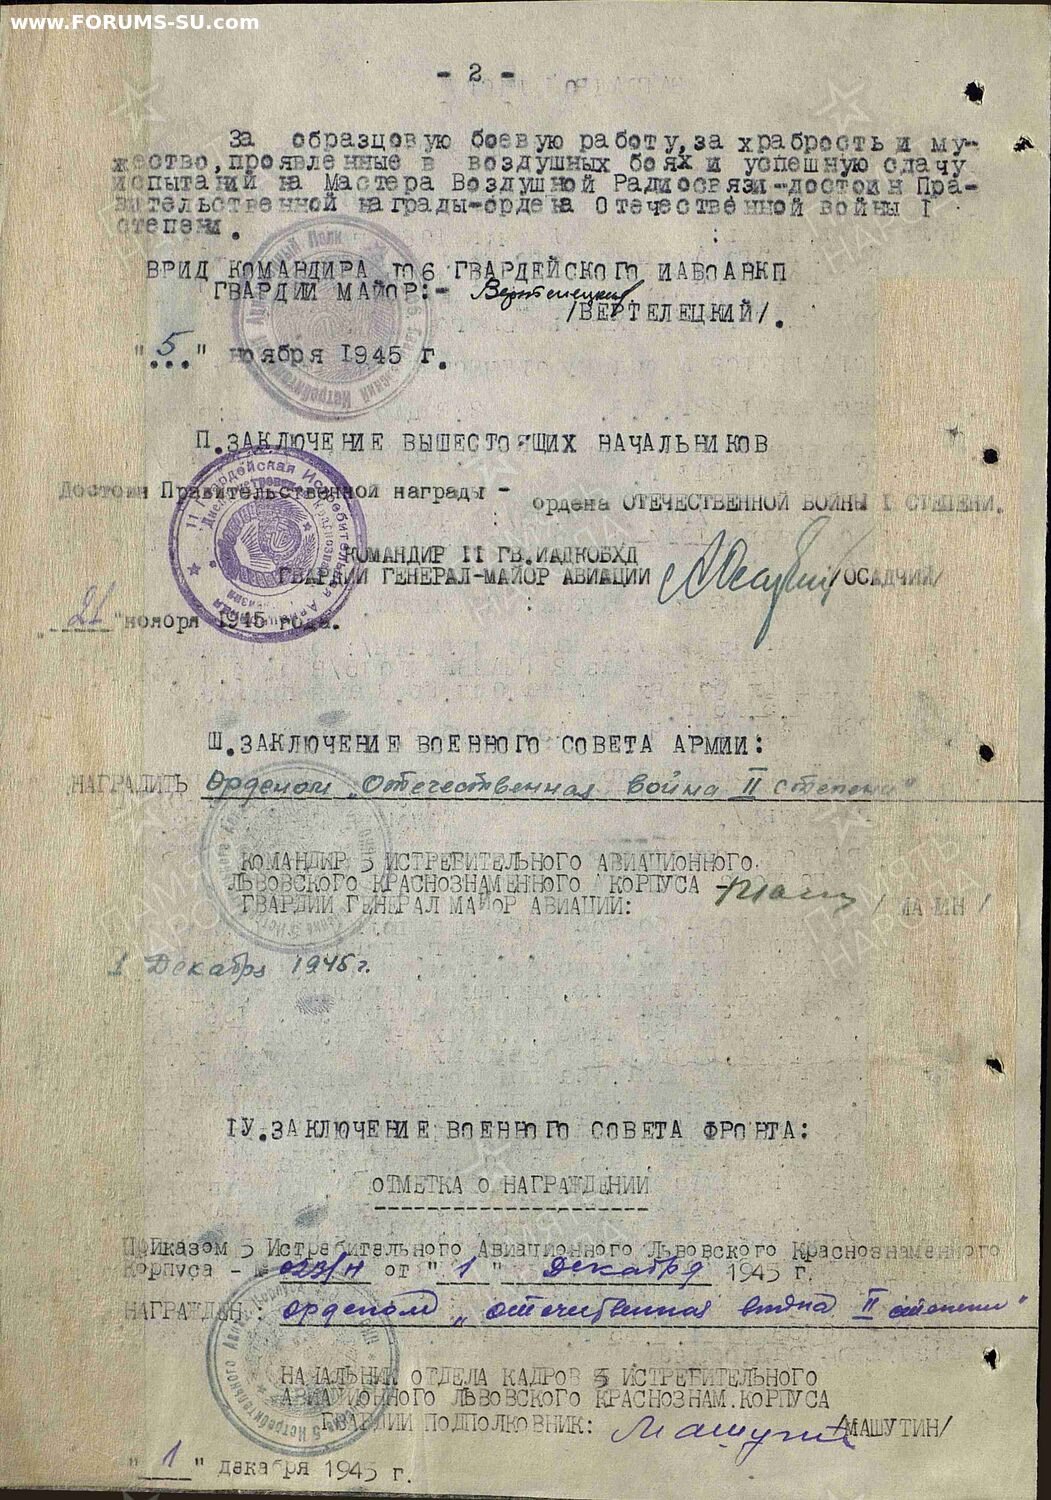 www.FORUMS-SU.com
- 2 -
За образцовую боевую работу, за храбрость и му-
жество, проявленные в воздушных боях и успешную сдачу
испытаний на Мастера Воздушной Радиосвязи-достоин Пра-
вительственной награды-ордена Отечественной войны I
степени.
ВРИД КОМАНДИРА 106 ГВАРДЕЙСКОГО ИАВОАВКП
ГВАРДИИ МАЙОР:- Вертелецкий
/ВЕРТЕЛЕЦКИЙ/.
"5" ноября 1945 г.
П. ЗАКЛЮЧЕНИЕ ВЫШЕСТОЯЩИХ НАЧАЛЬНИКОВ
Достоин Правительственной награды - ордена ОТЕЧЕСТВЕННОЙ ВОЙНЫ I СТЕПЕНИ.
КОМАНДИР II ГВ.ИАДКОБХД
ГВАРДИИ ГЕНЕРАЛ-МАЙОР АВИАЦИИ Осадчий /ОСАДЧИЙ/
"21" ноября 1945 года.
Ш. ЗАКЛЮЧЕНИЕ ВОЕННОГО СОВЕТА АРМИИ:
НАГРАДИТЬ Орденом „Отечественная война II степени"
КОМАНДИР 5 ИСТРЕБИТЕЛЬНОГО АВИАЦИОННОГО
ЛЬВОВСКОГО КРАСНОЗНАМЕННОГО КОРПУСА
ГВАРДИИ ГЕНЕРАЛ МАЙОР АВИАЦИИ: /МАЧИН/
1 Декабря 1945 г.
IУ. ЗАКЛЮЧЕНИЕ ВОЕННОГО СОВЕТА ФРОНТА:
ОТМЕТКА О НАГРАЖДЕНИИ
Приказом 5 Истребительного Авиационного Львовского Краснознаменного
Корпуса - № 023/н от "1" декабря 1945 г.
НАГРАЖДЕН: орденом „отечественная война II степени"
НАЧАЛЬНИК ОТДЕЛА КАДРОВ 5 ИСТРЕБИТЕЛЬНОГО
АВИАЦИОННОГО ЛЬВОВСКОГО КРАСНОЗНАМ.КОРПУСА
ГВАРДИИ ПОДПОЛКОВНИК: Машутин /МАШУТИН/
"1" декабря 1945 г.